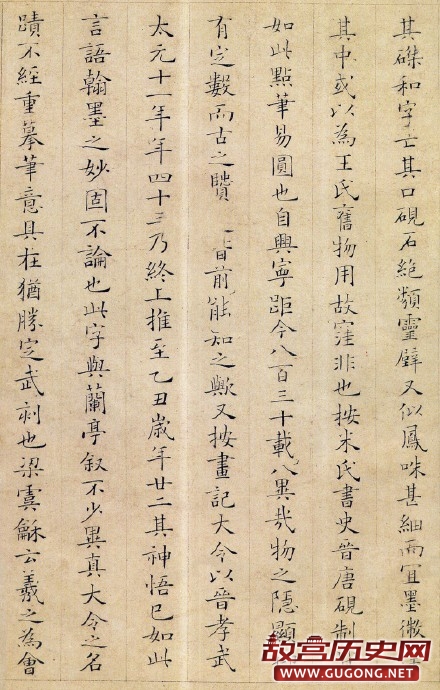 其磔和字亡其口硯石絶類靈壁又似鳳咮甚細而宜墨微
其中或以為王氏舊物用故窪非也按米氏書史晉唐硯制
如此點筆易圓也自興寧距今八百三十載八異哉物之隱顯
有定數而古之賢 百前能知之歟又按畫記大令以晉孝武
太元十一年年四十三乃終上推至乙丑歲年廿二其神悟已如此
言語翰墨之妙固不論也此字與蘭亭叙不少異真大令之名
蹟不經重摹筆意具在猶勝定武刻也梁虞龢云羲之為會
故宫历史网
WWW.GUGONG.NET